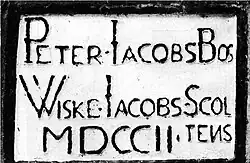 PETER·IACOBS BOS
WISKE·IACOBS SCOL
MDCCII·TENS